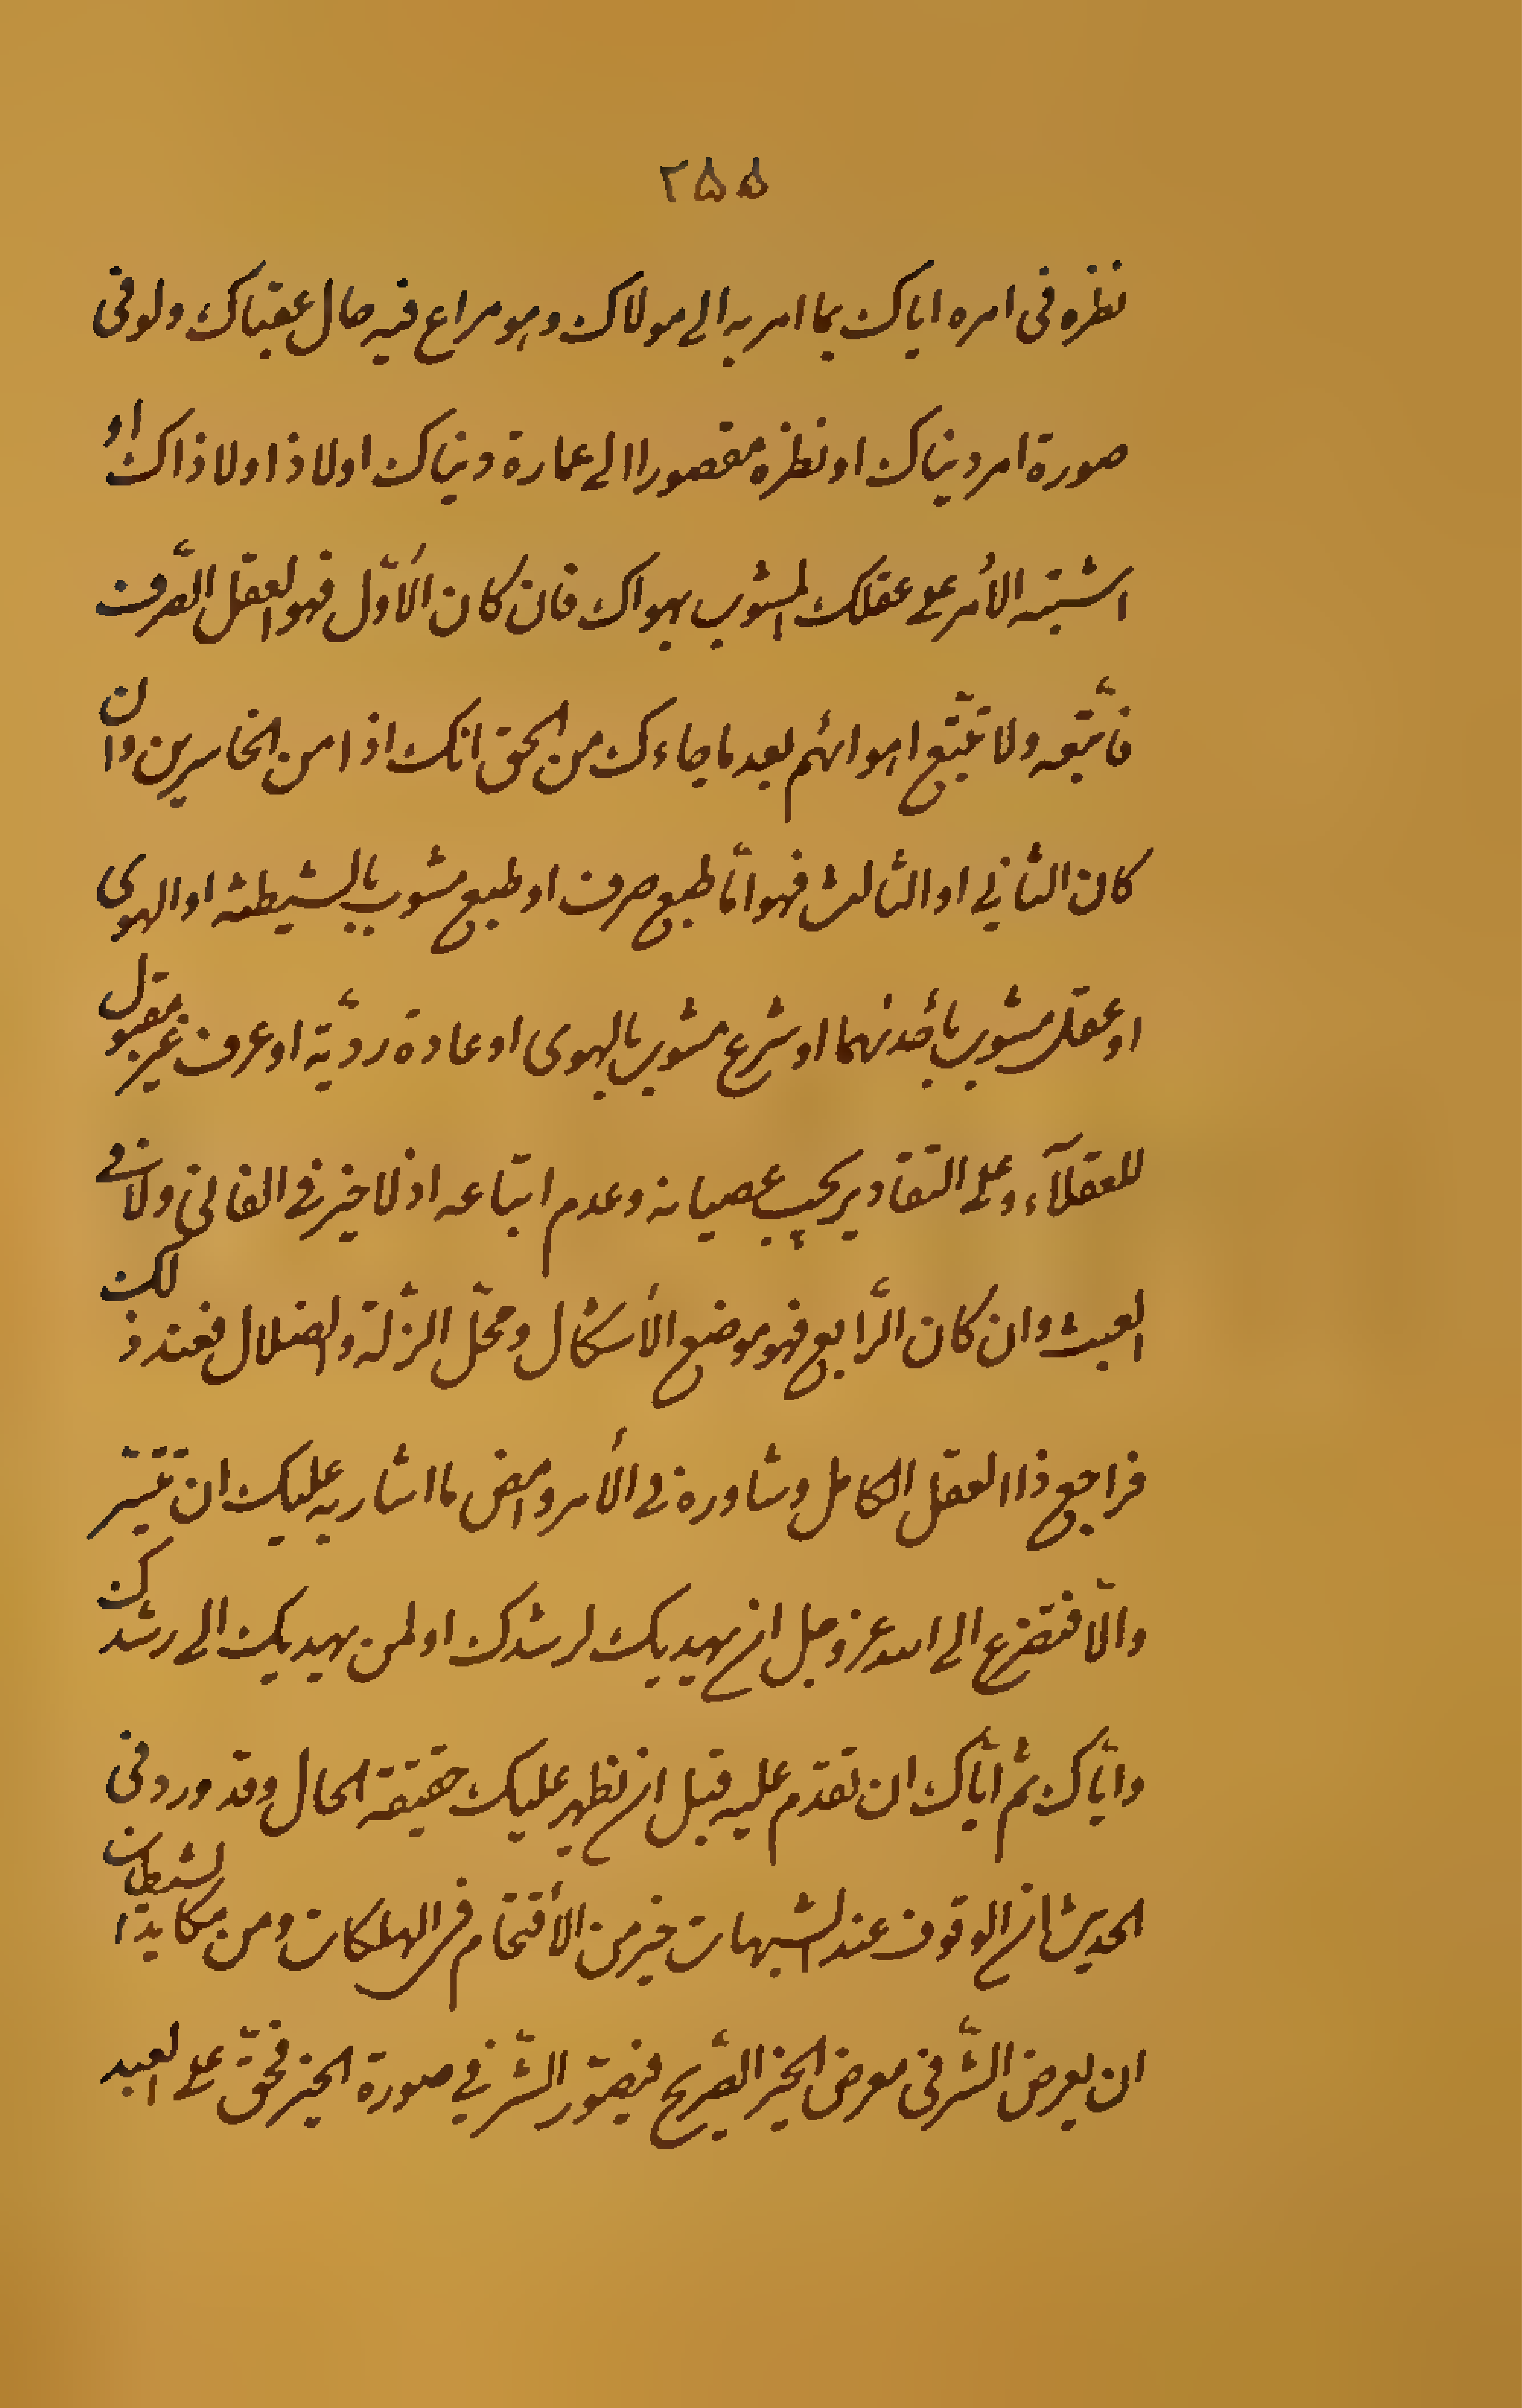 ۲۵۵
نظره فى امره اياك بما امر به الى مولاك وهو مراع فيه حال عقباك ولو فى
صورة امر دنياك او نظره مقصورا الى عمارة دنياك اولا ذا ولا ذاك او
اشتبه الأمر على عقلك المشوب بهواك فان كان الأوّل فهو العقل الصّرف
فاتّبعه ولا تتّبع اهوائهم بعد ما جاءك من الحق انك اذا من الخاسرين وان
كان الثاني او الثالث فهو امّا طبع صرف او طبع مشوب بالشيطنه او الهوى
او عقل مشوب بأحدهما او شرع مشوب بالهوى او عادة رديّة او عرف غير مقبول
للعقلآء وعلى التقادير يجب عصيانه وعدم اتّباعه اذ لا خير فى الفانى ولا فى
العبث وان كان الرّابع فهو موضع الأشكال ومحلّ الزّلة والضلال فعند ذلك
فراجع ذا العقل الكامل وشاوره فى الأمر وامض ما اشار به عليك ان تيسّر
والّا فتضرع الى الله عز وجل ان يهديك لرشدك او لمن يهديك الى رشدك
وايّاك ثم ايّاك ان تقدّم عليه قبل ان تظهر عليك حقيقة الحال وقد ورد فى
الحديث ان الوقوف عند الشبهات خير من الأقتحام فى الهلكات ومن مكايد الشيطان
ان يعرض الشّر فى معرض الخير الصّريح فيصّور الشّر في صورة الخير فحقّ على العبد